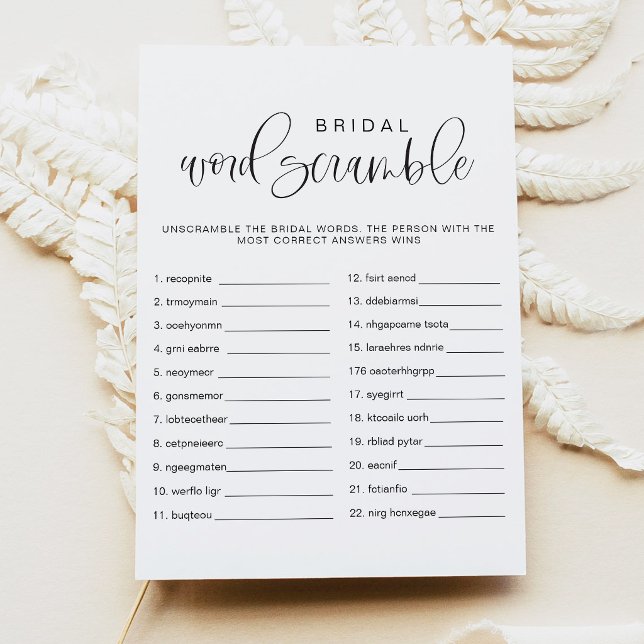 BRIDAL
word scramble
UNSCRAMBLE THE BRIDAL WORDS. THE PERSON WITH THE
MOST CORRECT ANSWERS WINS
1. recopnite
2. trmoymain
3. ooehyonmn
4. grni eabrre
5. neoymecr
6. gonsmemor
7. lobtecethear
8. cetpneieerc
9. ngeegmaten
10. werflo ligr
11. buqteou
12. fsirt aencd
13. ddebiarmsi
14. nhgapcame tsota
15. laraehres ndnrie
176 oaoterhhgrpp
17. syegirrt
18. ktcoailc uorh
19. rbliad pytar
20. eacnif
21. fctianfio
22. nirg hcnxegae